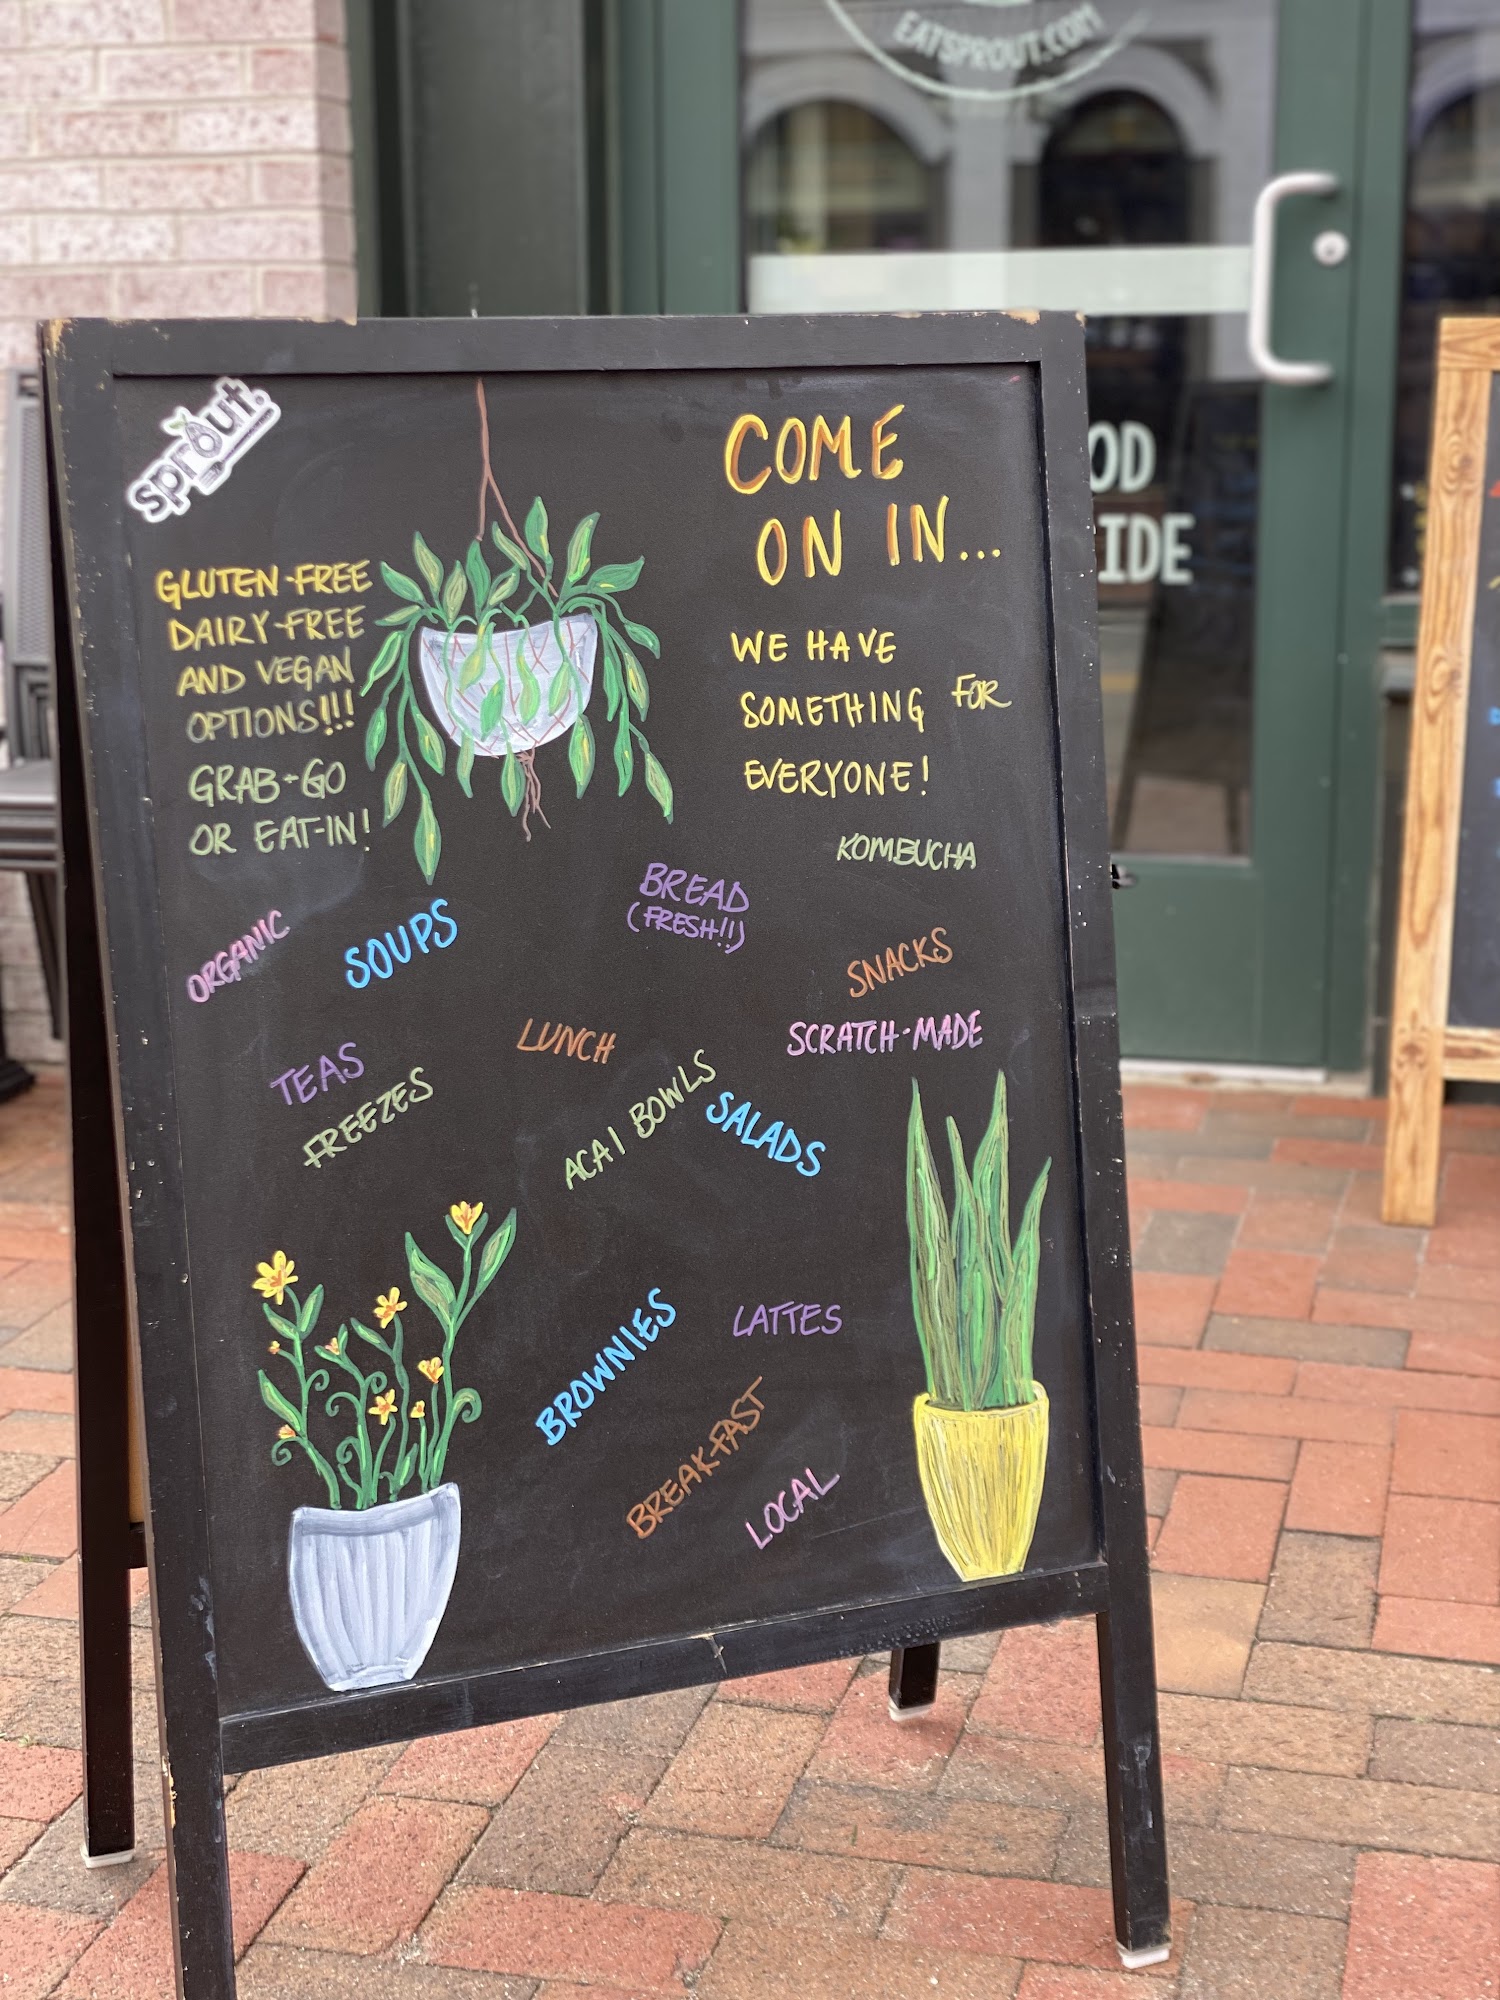 EATSPROUT.COM
OD
IDE
sprout.
COME
ON IN...
WE HAVE
SOMETHING FOR
EVERYONE!
GLUTEN-FREE
DAIRY-FREE
AND VEGAN
OPTIONS!!!
GRAB-GO
OR EAT-IN!
KOMBUCHA
BREAD
(FRESH!!)
ORGANIC
SOUPS
SNACKS
LUNCH
SCRATCH-MADE
TEAS
FREEZES
ACAI BOWLS
SALADS
BROWNIES
LATTES
BREAKFAST
LOCAL